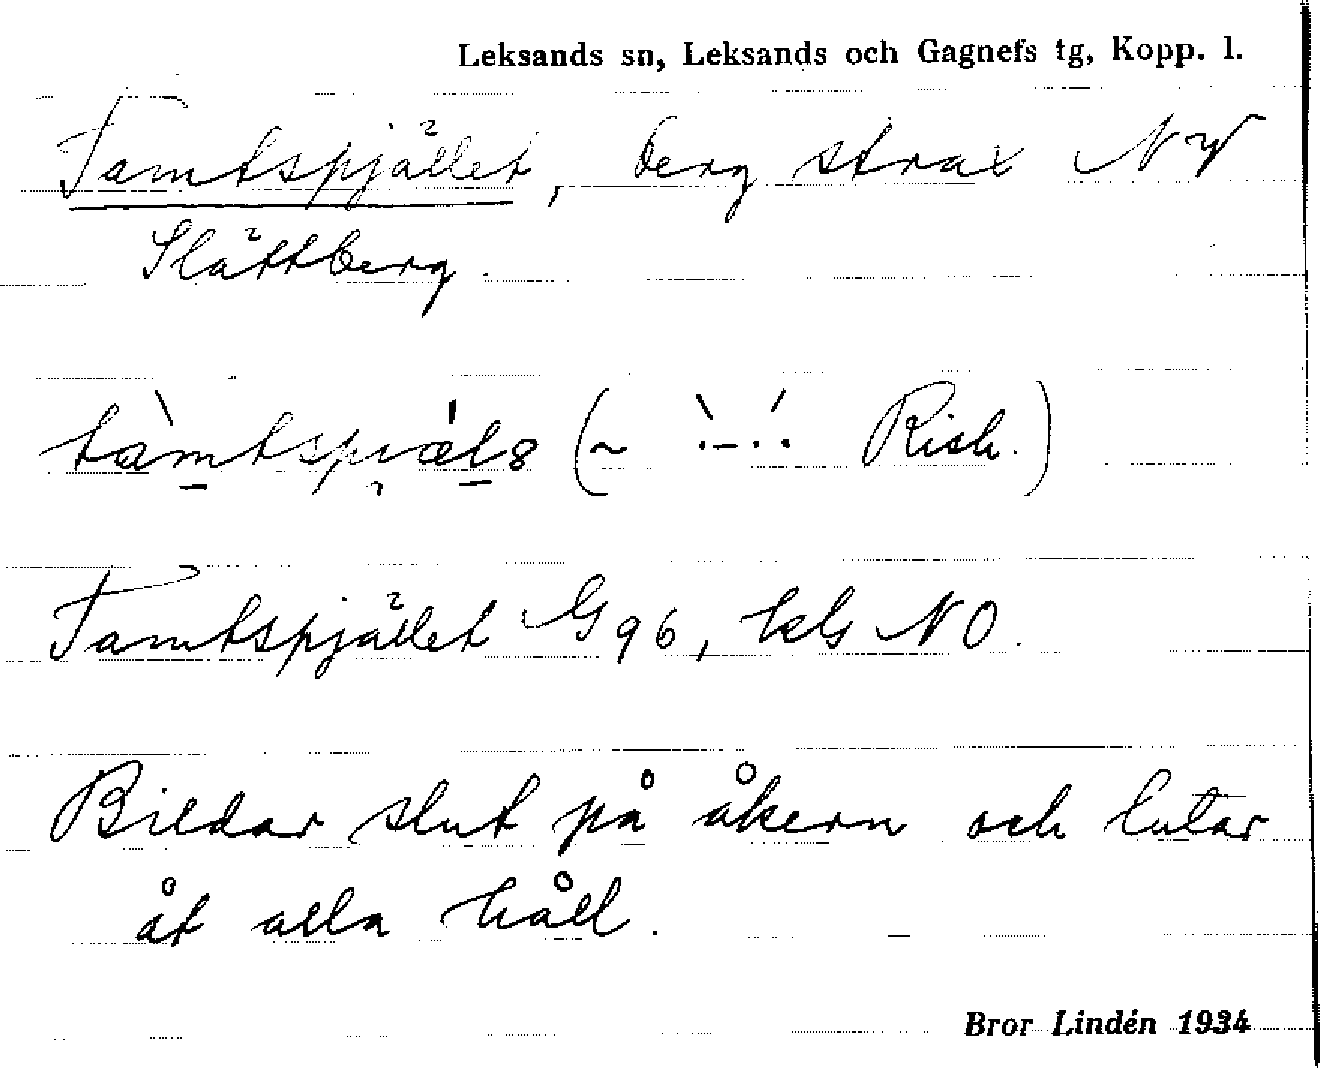 Leksands sn, Leksands och Gagnefs tg, Kopp. l.
Tamtspjället, berg strax NV
Slättberg.
Tamtspjället G 96, kls NO.
Bildar slut på åkern och lutar
åt alla håll.
Bror Lindén 1934